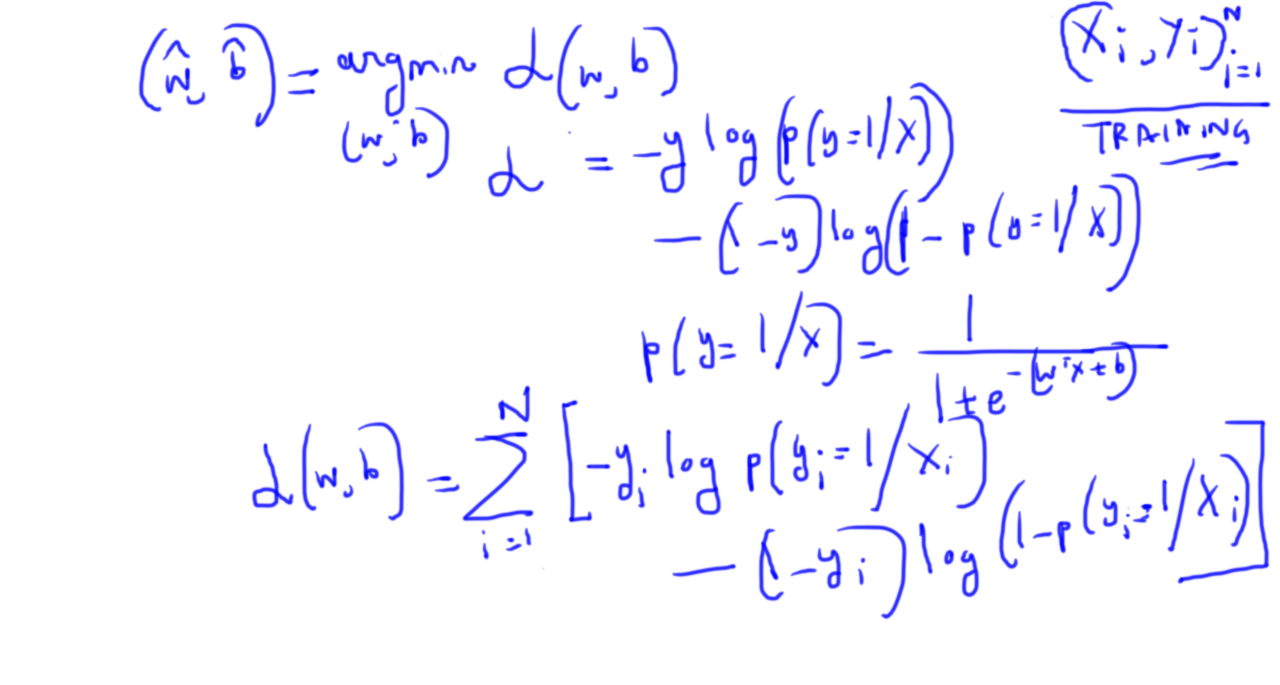 (ŵ, b̂) = argmin L(w, b)
(w, b)
(Xi, yi)^N i=1
TRAINING
L = -y log(p(y=1/X))
- (1-y) log(1 - p(y=1/X))
p(y=1/X) = 1 / (1 + e^-(wᵀx + b))
L(w, b) = Σ^N i=1 [-yi log p(yi=1/Xi)
- (1-yi) log(1-p(yi=1/Xi)]